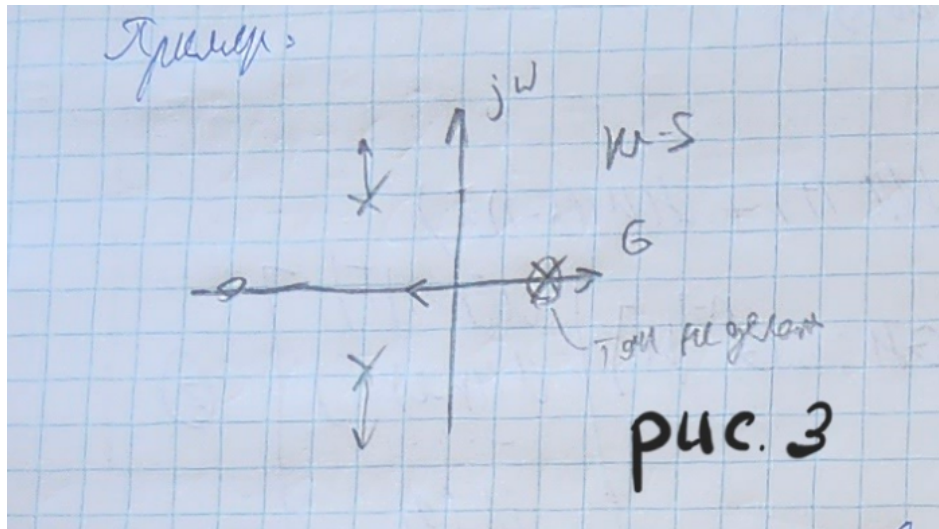 Пример:
jω
пл-S
σ
так не делать
рис. 3